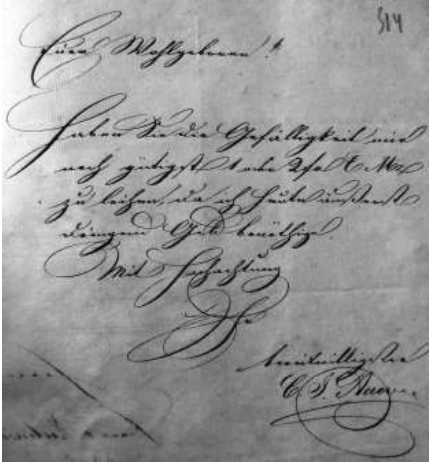 314
Euer Wohlgeboren!
Haben Sie die Gefälligkeit mir
noch gütigst 1 oder 2 fr C. Mze
zu leihen, da ich heute äußerst
dringend Geld benöthige.
Mit Hochachtung
Ihr
bereitwilligster
C. F.